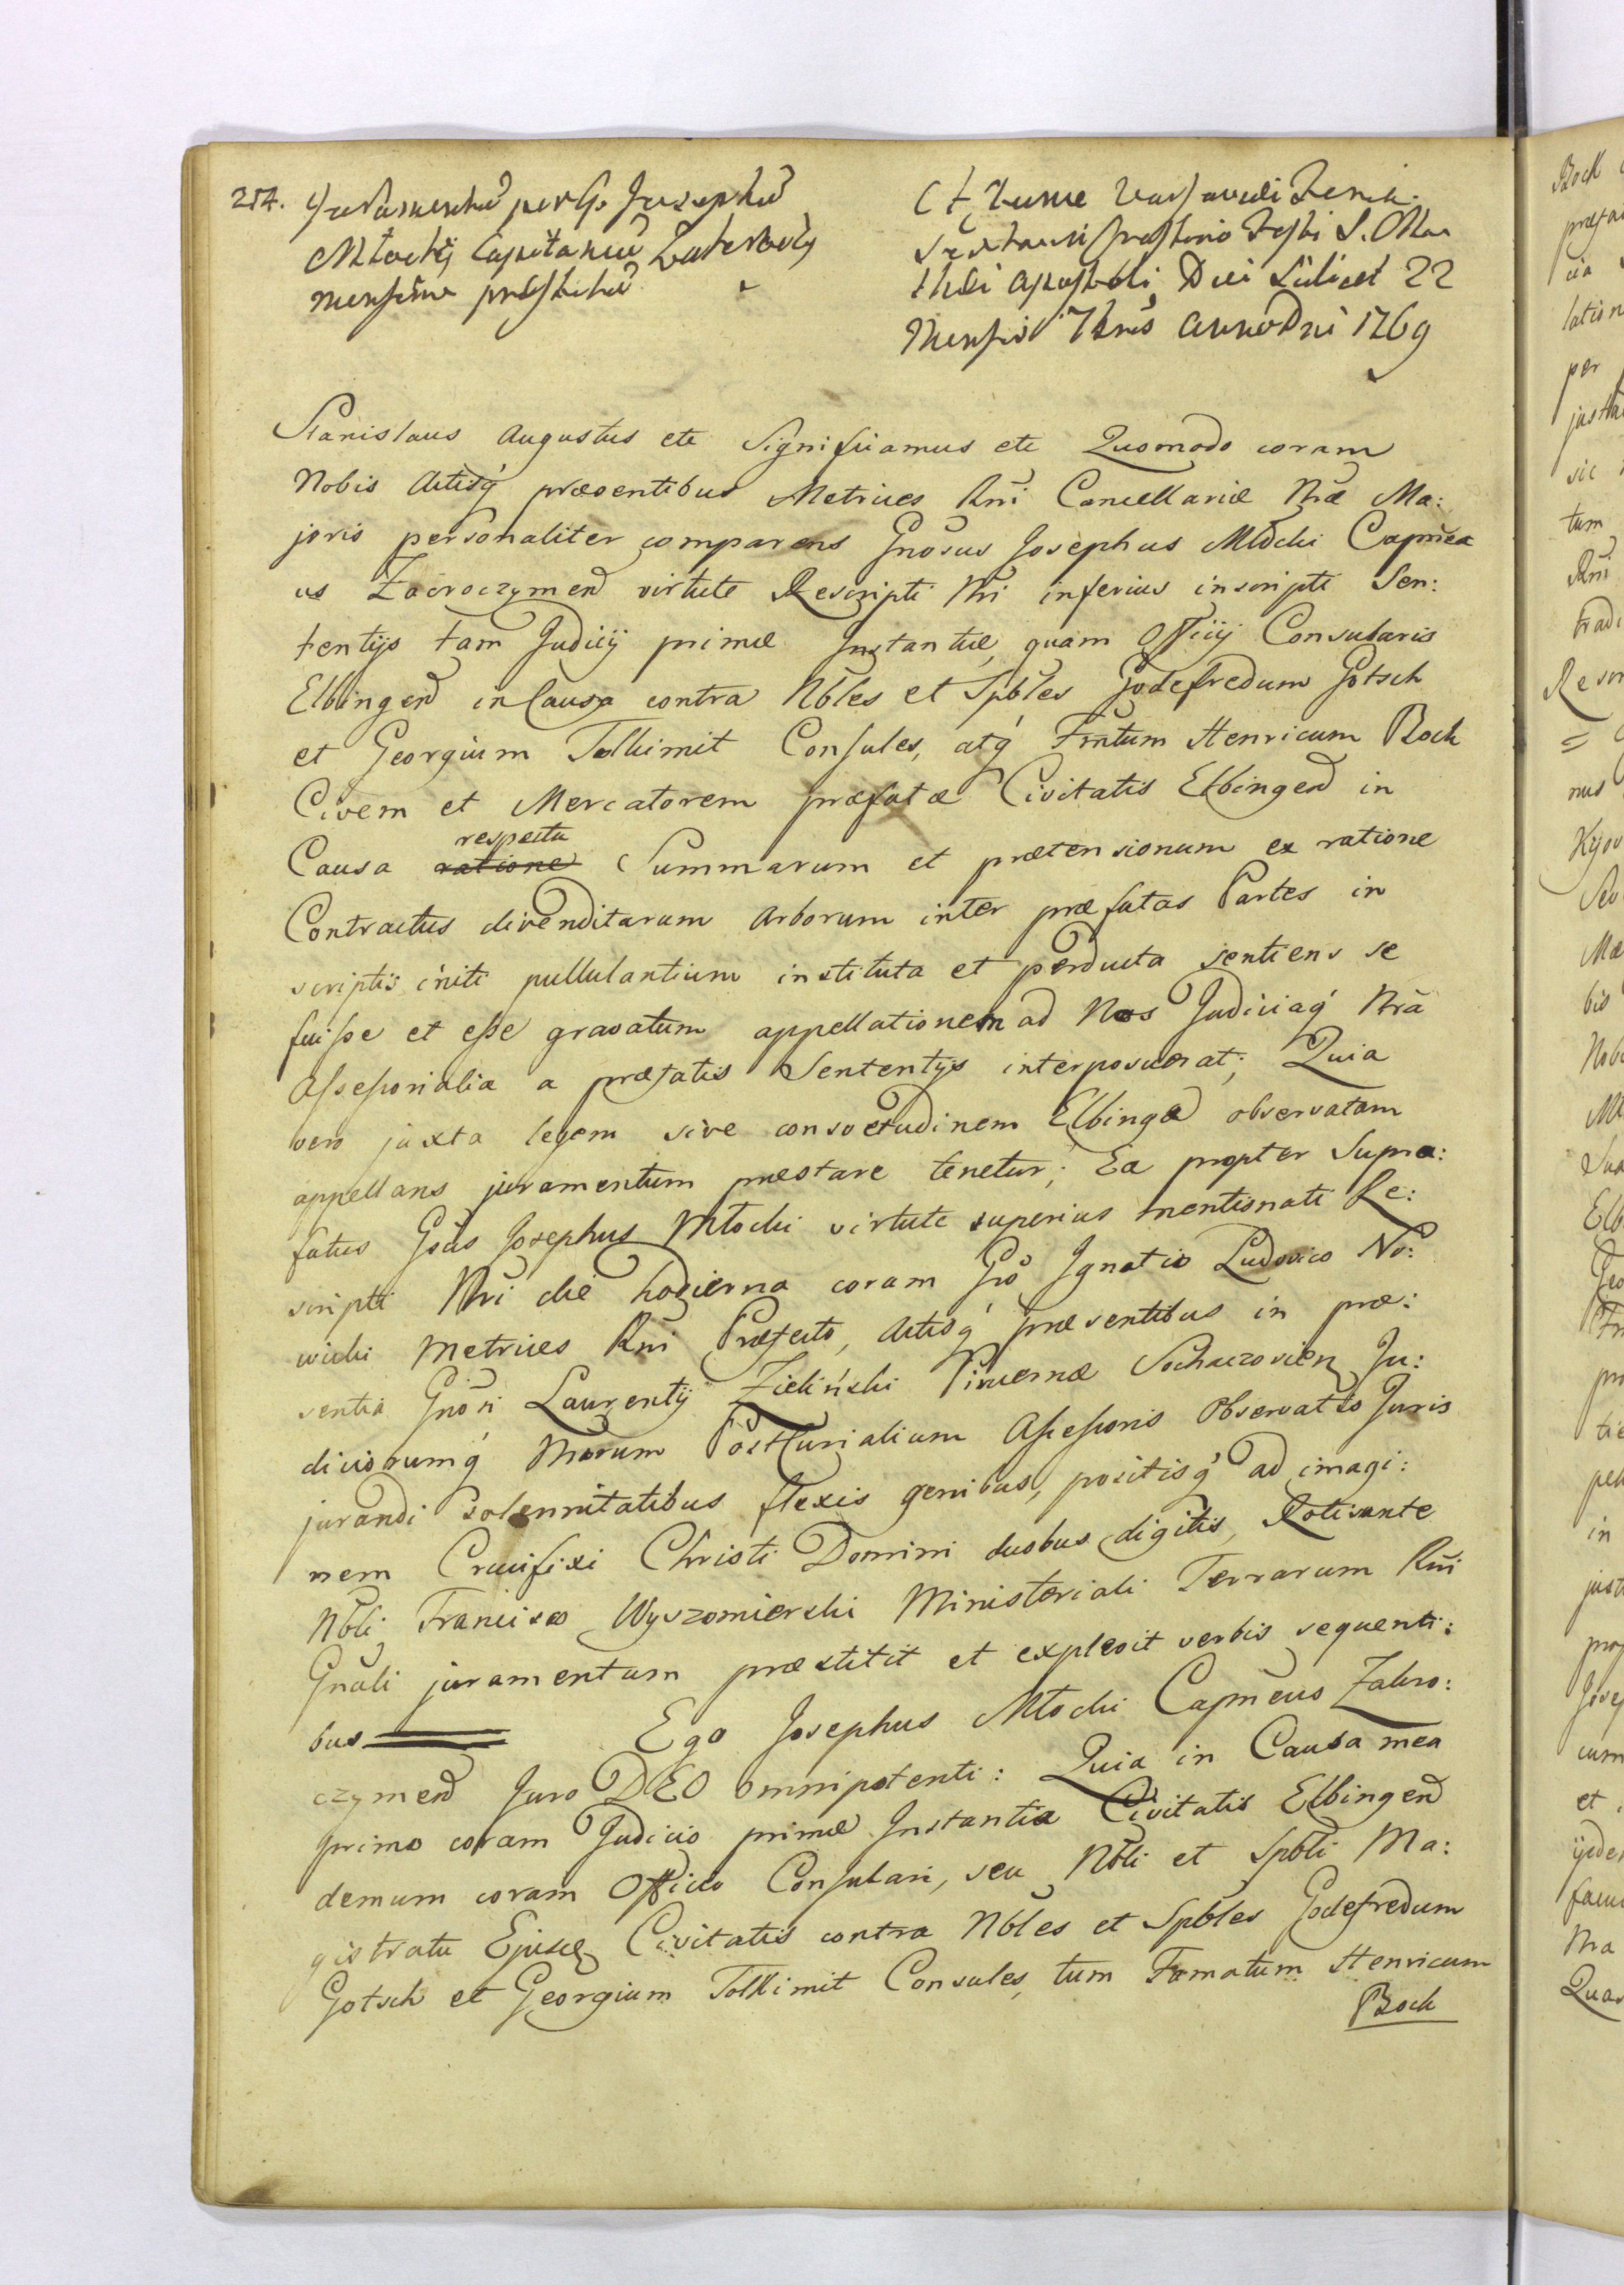 254. Juramentũ per G. Josephũ
Młocki Capitaneũ Zakroczy
mensem præstitũ
Actum Varsaviæ Feria
Sexta in Crastino Festi S. Mat
thæi Apostoli, Die scilicet 22
Mensis 7bris Anno Dni 1769
Stanislaus Augustus etc Significamus etc Quomodo coram
Nobis Actisq́ præsentibus Metrices Rñi Cancellariæ Nræ Ma:
joris personaliter comparens Gnosus Josephus Młocki Capñea
us Zacroczymen̄ virtute Rescripti Nri inferius inscripti Sen:
tentijs tam Judicij primæ Instantiæ, quam Officij Consularis
Elbingen̄ in Causa contra Nbles et Spbles Godefredum Gotsch
et Georgium Tolkimit Consules, atq́ Fmtum Henricum Bock
Civem et Mercatorem præfatæ Civitatis Elbingen̄ in
respectu
Causa ratione Summarum et prætensionum ex ratione
Contractus divenditarum Arborum inter præfatas Partes in
scriptis initi pullulantium instituta et perducta sentiens se
fuisse et esse gravatum appellationem ad Nos Judiciaq́ Nrã
Assessorialia a præfatis Sententijs interposuerat; Quia
vero juxta legem sive consvetudinem Elbingæ observatam
appellans juramentum præstare tenetur; Ea propter Supra:
fatus Gsus Josephus Młocki virtute superius mentionati Re:
scripti Nri die hodierna coram Gso Ignatio Ludovico No:
wicki Metrices Rñi Præfecto, Actisq́ præsentibus in præ:
sentia Gnõsi Laurentij Zieliński Pincernæ Sochaczovien̄ Ju:
diciorumq́ Nrorum PostCurialium Assessoris Observatis Juris
jurandi solennitatibus flexis genibus, positisq́ ad imagi:
nem Crucifixi Christi Domini duobus digitis, Rotisante
Nbli Francisco Wyszomierski Ministeriali Terrarum Rñi
Gnãli juramentum præstitit et explevit verbis sequenti:
bus Ego Josephus Młocki Capñeus Zakro:
czymen̄ Juro DEO Omnipotenti: Quia in Causa mea
primo coram Judicio primæ Instantiæ Civitatis Elbingen̄
demum coram Officio Consulari, seu Nbli et Spbli Ma:
gistratu Ejusdē Civitatis contra Nbles et Spbles Godefredum
Gotsch et Georgium Tolkimit Consules, tum Famatum Henricum
Bock